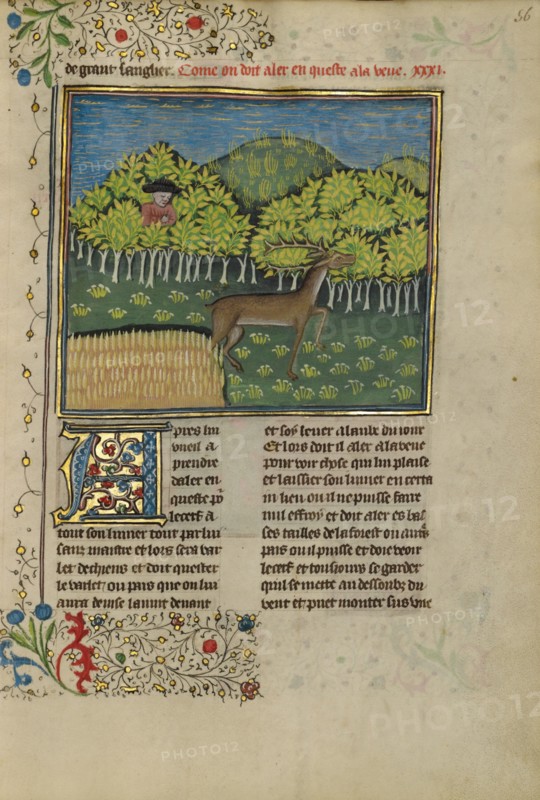 56
de grant sanglier. Come on doit aler en queste a la veue. xxxi.
Apres lui
vueil a
prendre
daler en
queste po
le cerf a
tout son limier tout par lui
sanz maistre et lors sera var
let de chiens et doit quester
le varlet ou pais que on lui
aura devise la nuit devant
et soy lever a laube du iour
Et lors doit il aler a la veue
pour voir chose qui lui plaise
et laissier son limier en certa
in lieu ou il ne puisse faire
nul effroy et doit aler es bas
ses tailles de la forest ou autres
pais ou il puisse et doie veoir
le cerf et tousiours se garder
quil se mette au dessoubz du
vent et puet monter sus une
PHOTO12